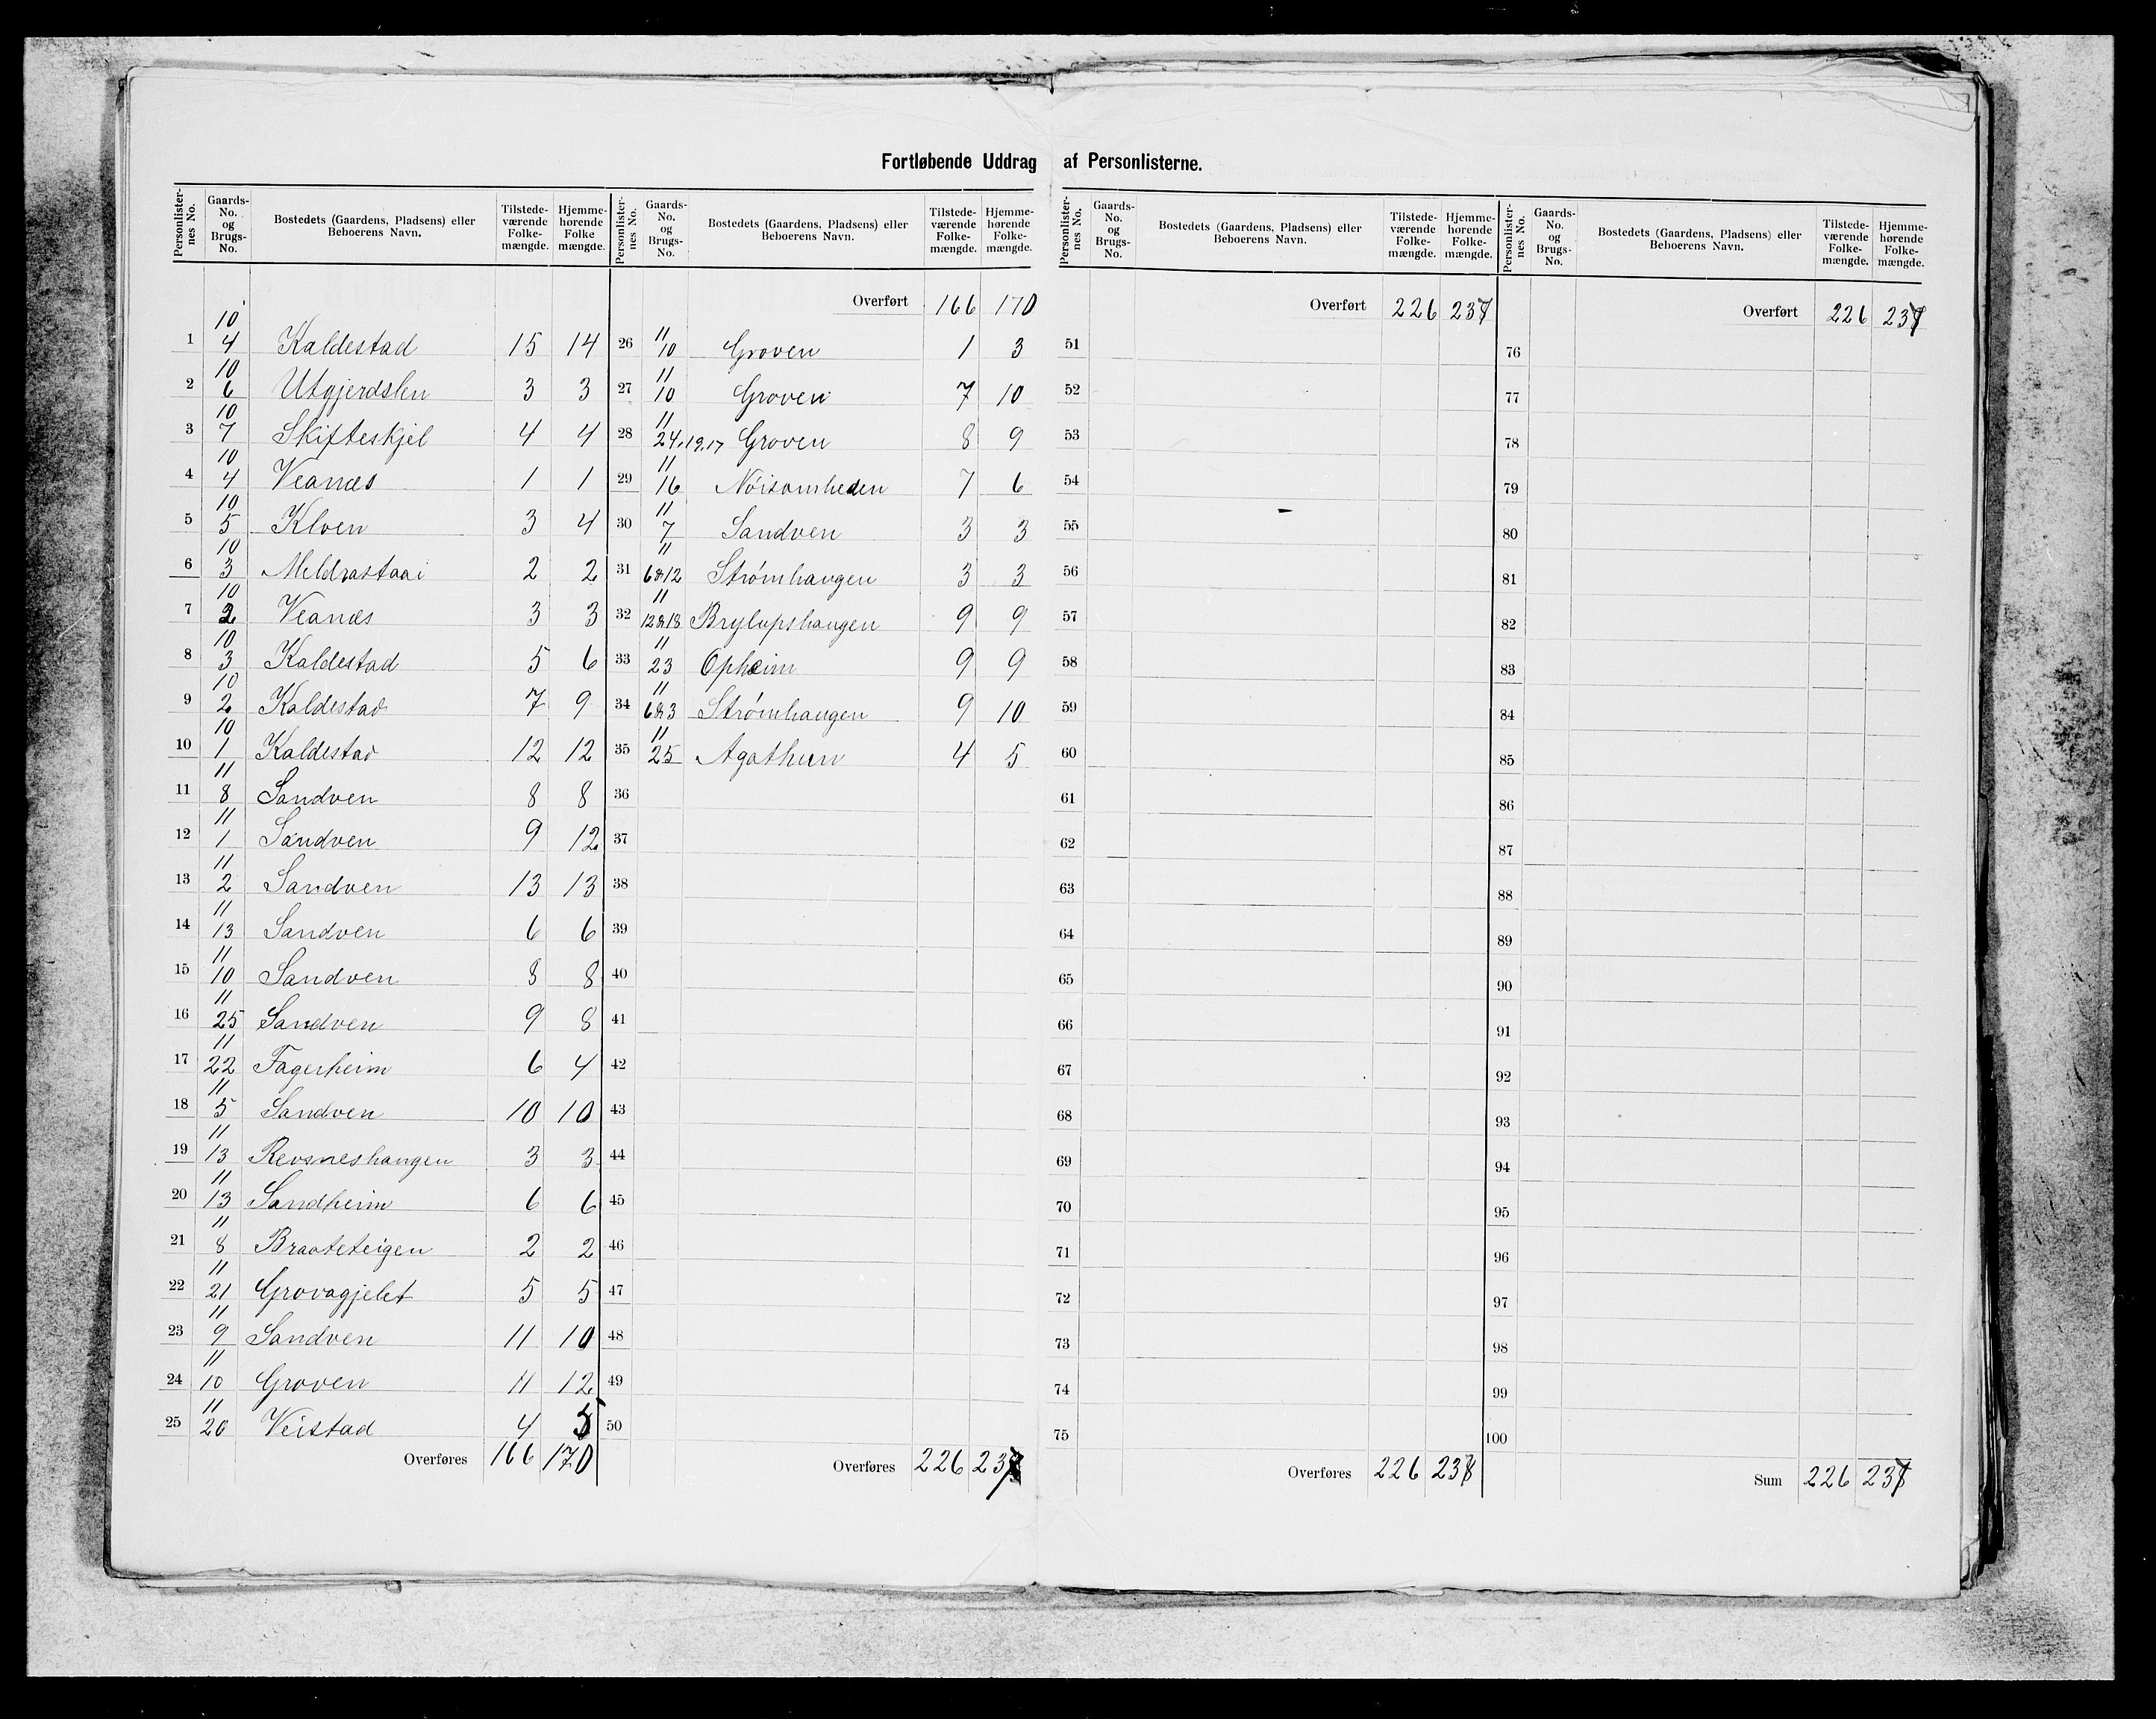 Fortløbende Uddrag af Personlisterne.
Personlister-nes No. Gaards-No. og Brugs-No. Bostedets (Gaardens, Pladsens) eller Beboerens Navn. Tilstede-værende Folke-mængde. Hjemme-hørende Folke mængde.
1 10/4 Kaldestad 15 14
2 10/6 Utgjerdslen 3 3
3 10/7 Skifteskjel 4 4
4 10/4 Veanæs 1 1
5 10/5 Kloen 3 4
6 10/3 Meldrastaai 2 2
7 10/2 Veanæs 3 3
8 10/3 Kaldestad 5 6
9 10/2 Kaldestad 7 9
10 10/1 Kaldestad 12 12
11 11/8 Sandven 8 8
12 11/1 Sandven 9 12
13 11/2 Sandven 13 13
14 11/13 Sandven 6 6
15 11/10 Sandven 8 8
16 11/25 Sandven 9 8
17 11/22 Fagerheim 6 4
18 11/5 Sandven 10 10
19 11/13 Revsneshaugen 3 3
20 11/13 Sandheim 6 6
21 11/8 Braateteigen 2 2
22 11/21 Grovagjelet 5 5
23 11/9 Sandven 11 10
24 11/10 Groven 11 12
25 11/20 Veistad 4 5
Overføres 166 170
Personlister-nes No. Gaards-No. og Brugs-No. Bostedets (Gaardens, Pladsens) eller Beboerens Navn. Tilstede-værende Folke-mængde. Hjemme-hørende Folke-mængde.
Overført 166 170
26 11/10 Groven 1 3
27 11/10 Groven 7 10
28 11/24.19.17 Groven 8 9
29 11/16 Nöisomheden 7 6
30 11/7 Sandven 3 3
31 11/6&12 Strømhaugen 3 3
32 11/12&18 Brylupshaugen 9 9
33 11/23 Opheim 9 9
34 11/6&3 Strømhaugen 9 10
35 11/25 Agathun 4 5
36
37
38
39
40
41
42
43
44
45
46
47
48
49
50
Overføres 226 237
Personlister-nes No. Gaards-No. og Brugs-No. Bostedets (Gaardens, Pladsens) eller Beboerens Navn. Tilstede-værende Folke-mængde. Hjemme-hørende Folke-mængde.
Overført 226 237
51
52
53
54
55
56
57
58
59
60
61
62
63
64
65
66
67
68
69
70
71
72
73
74
75
Overføres 226 237
Personlister-nes No. Gaards-No. og Brugs-No. Bostedets (Gaardens, Pladsens) eller Beboerens Navn. Tilstede-værende Folke-mængde. Hjemme-hørende Folke-mængde.
Overført 226 237
76
77
78
79
80
81
82
83
84
85
86
87
88
89
90
91
92
93
94
95
96
97
98
99
100
Sum 226 237